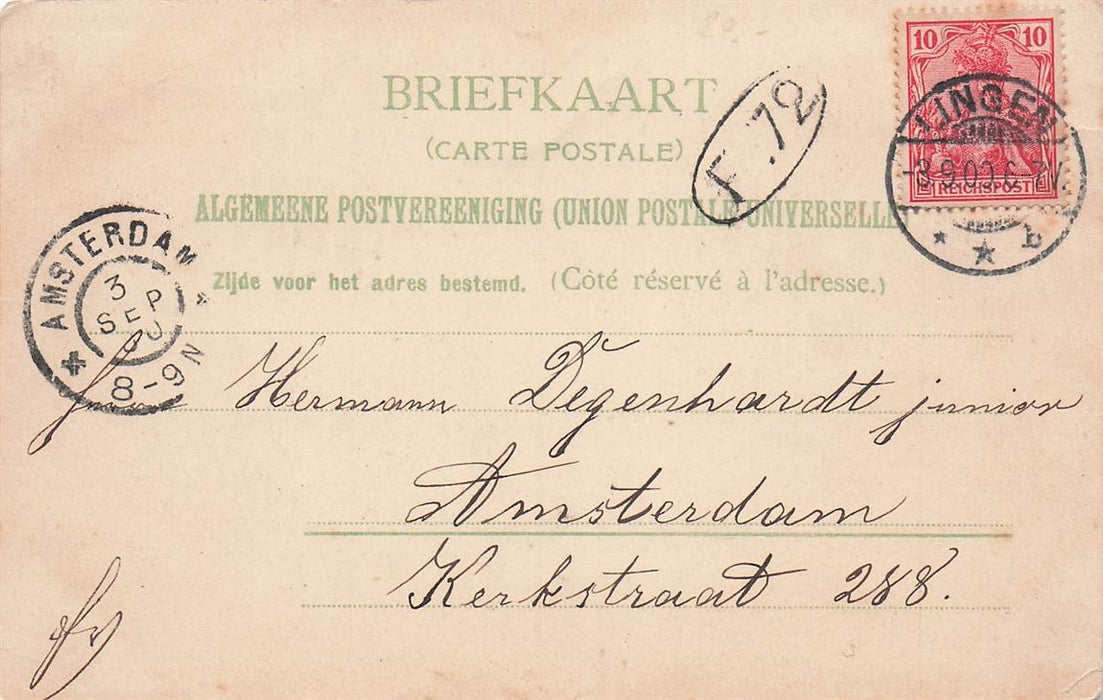 BRIEFKAART
(CARTE POSTALE)
ALGEMEENE POSTVEREENIGING (UNION POSTALE UNIVERSELLE
Zijde voor het adres bestemd. (Côté réservé à l'adresse.)
10 10
REICHSPOST
LINGEN
3.9.00.6-7V.
* ★ b
F.72
AMSTERDAM
3
SEP
00
8-9N
Hermann Degenhardt junior
Amsterdam
Kerkstraat 288.